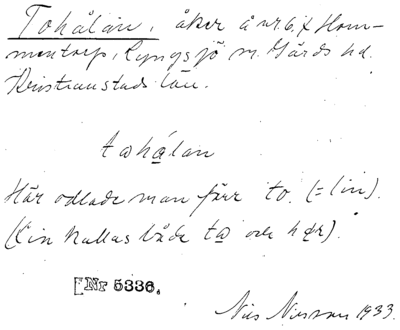 Tohålan, åker å nr. 6, Hom-
mentorp, Lyngsjö sn. Gärds hd.
Kristianstads län.
tωhάlan
Här odlade man förr to. (= lin).
(Lin kallas både tω och hør).
[Nr 5336.
Nils Nilsson 1933.